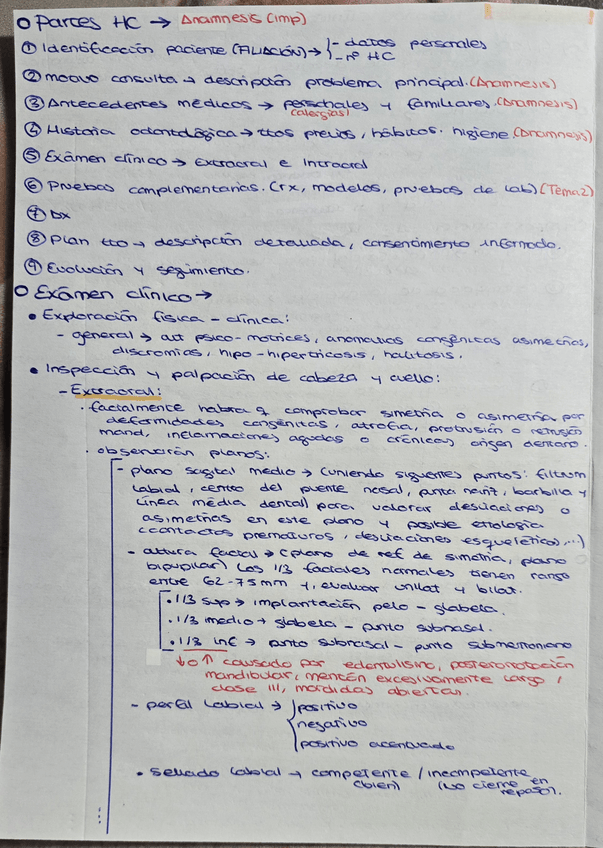 ○ Partes HC → Anamnesis (imp)
① Identificación paciente (FILIACIÓN) → - datos personales
- nº HC
② motivo consulta → descripción problema principal. (Anamnesis)
③ Antecedentes médicos → personales y familiares. (Anamnesis)
(alergias)
④ Historia odontológica → ttos previos, hábitos. higiene (Anamnesis)
⑤ Exámen clínico → Extraoral e Intraoral
⑥ Pruebas complementarias. (rx, modelos, pruebas de lab) (Tema 2)
⑦ Dx
⑧ Plan tto → descripción detallada, consentimiento informado.
⑨ Evolución y seguimiento.
○ Exámen clínico →
• Exploración física - clínica:
- general → alt psico-motrices, anomalías congénitas asimetrías,
discromías, hipo-hipertricosis, halitosis.
• Inspección y palpación de cabeza y cuello:
- Extraoral:
· facialmente habra q comprobar simetría o asimetría por
deformidades congénitas, atrofia, protrusión o retrusión
mand, inflamaciones agudas o crónicas origen dentario.
· observarán planos:
- plano sagital medio → (uniendo siguientes puntos: filtrum
labial, centro del puente nasal, punta nariz, barbilla y
línea média dental) para valorar desviaciones o
asimetrías en este plano y posible etiología
(contactos prematuros, desviaciones esqueléticas,...)
- altura facial → (plano de ref de simetría, plano
bipupilar) Los 1/3 faciales normales tienen rango
entre 62-75 mm y, evaluar unilat y bilat.
· 1/3 sup → implantación pelo - glabela.
· 1/3 medio → glabela - punto subnasal.
· 1/3 inf → punto subnasal - punto submentoniano
↓ o ↑ causado por edentulismo, posterorrotación
mandibular, mentón excesivamente largo,
clase III, mordidas abiertas.
- perfil labial → positivo
negativo
positivo acentuado
• sellado labial → competente / incompetente
(bien) (no cierre en
reposo).